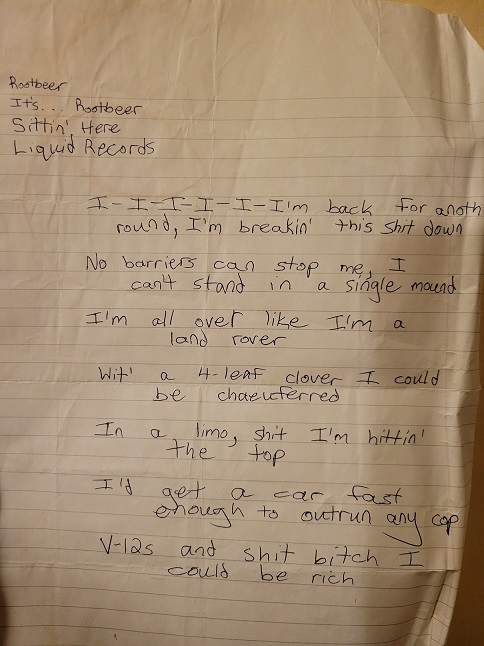 Rootbeer
It's... Rootbeer
Sittin' Here
Liquid Records
I-I-I-I-I-I'm back for anoth
round, I'm breakin' this shit down
No barriers can stop me, I
can't stand in a single mound
I'm all over like I'm a
land rover
Wit' a 4-leaf clover I could
be chaeuferred
In a limo, shit I'm hittin'
the top
I'd get a car fast
enough to outrun any cop
V-12s and shit bitch I
could be rich